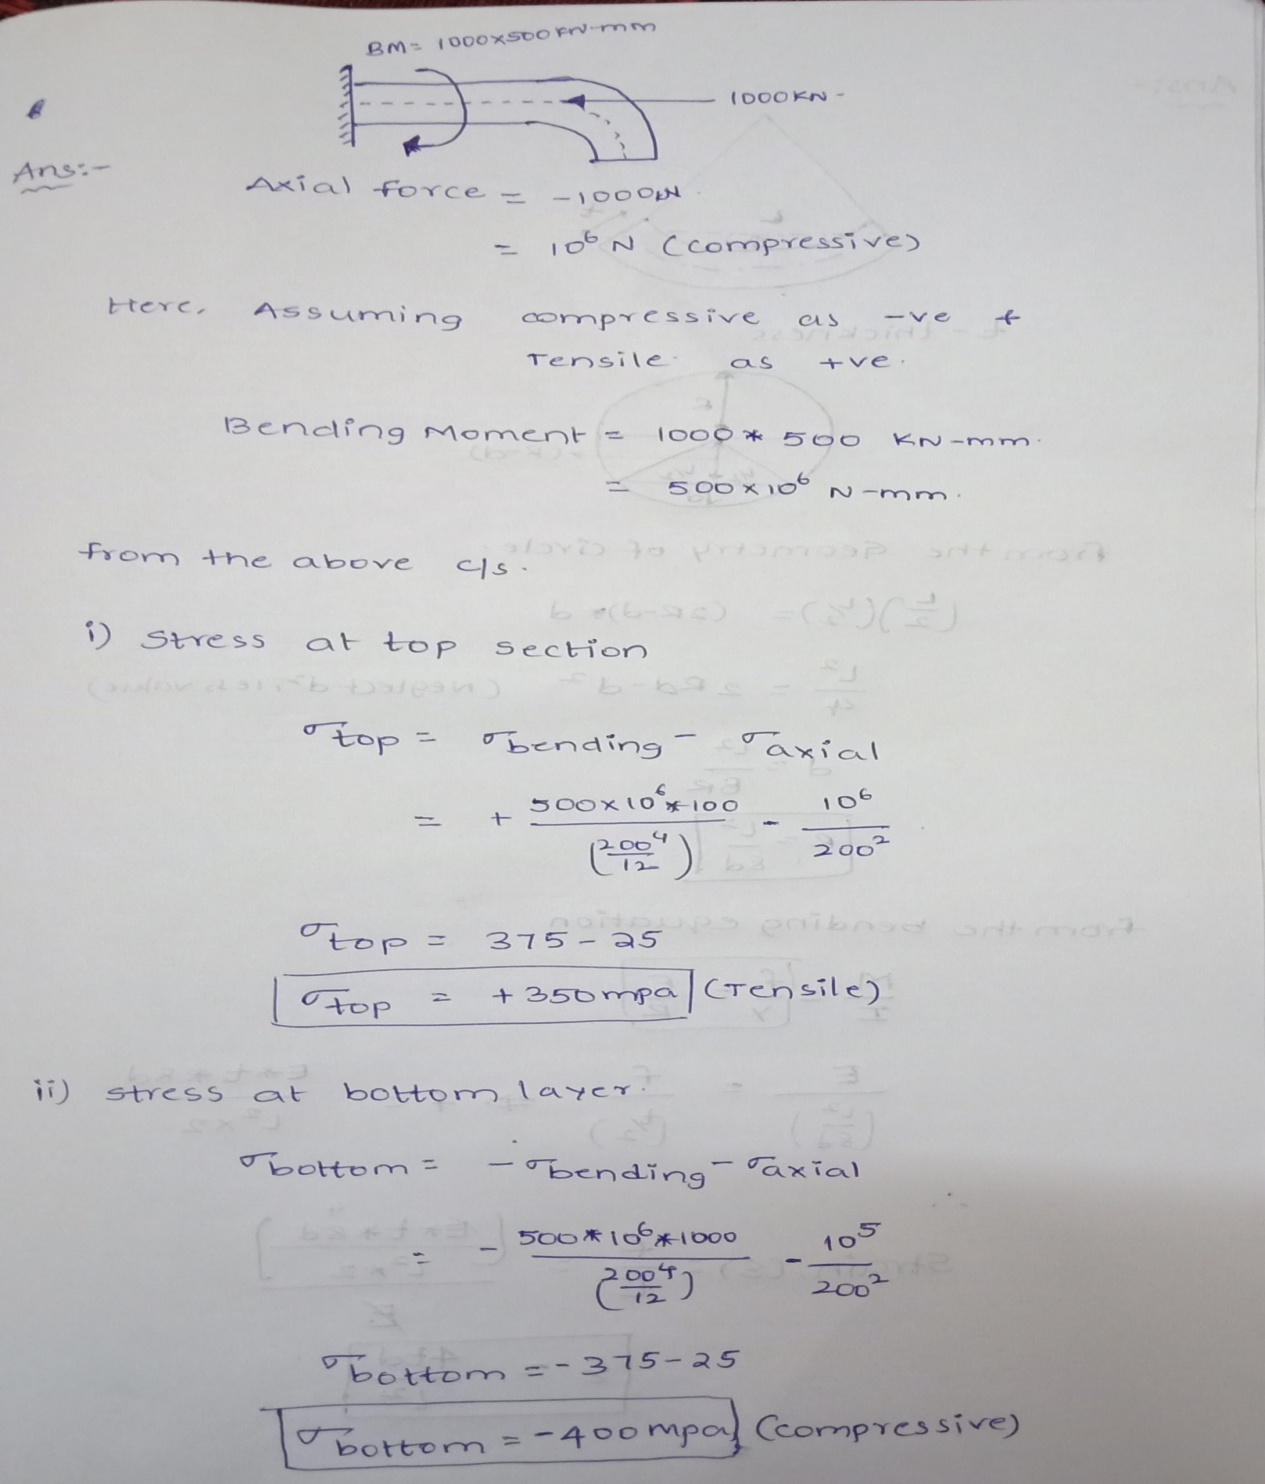 BM= 1000×500 KN-mm
1000KN-
Ans:-
Axial force = -1000KN
= 10⁶ N (compressive)
Here, Assuming compressive as -ve &
Tensile as +ve.
Bending Moment = 1000 * 500 KN-mm.
= 500×10⁶ N-mm.
from the above c/s.
i) Stress at top section
σtop = σbending - σaxial
= + 500×10⁶*100 / (200⁴/12) - 10⁶ / 200²
σtop = 375-25
σtop = +350mpa (Tensile)
ii) stress at bottom layer.
σbottom = -σbending - σaxial
= - 500*10⁶*1000 / (200⁴/12) - 10⁵ / 200²
σbottom = -375-25
σbottom = -400mpa (compressive)